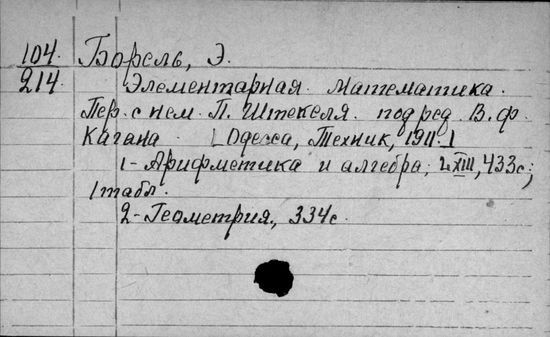 104. Борель, Э.
214 Элементарная математика.
Пер. с нем. П. Штекеля под ред. В. Ф.
Кагана [Одесса, Техник, 1911.]
1- Арифметика и алгебра, LXIII, 433 с;
1 табл.
2- Геометрия, 334 с.